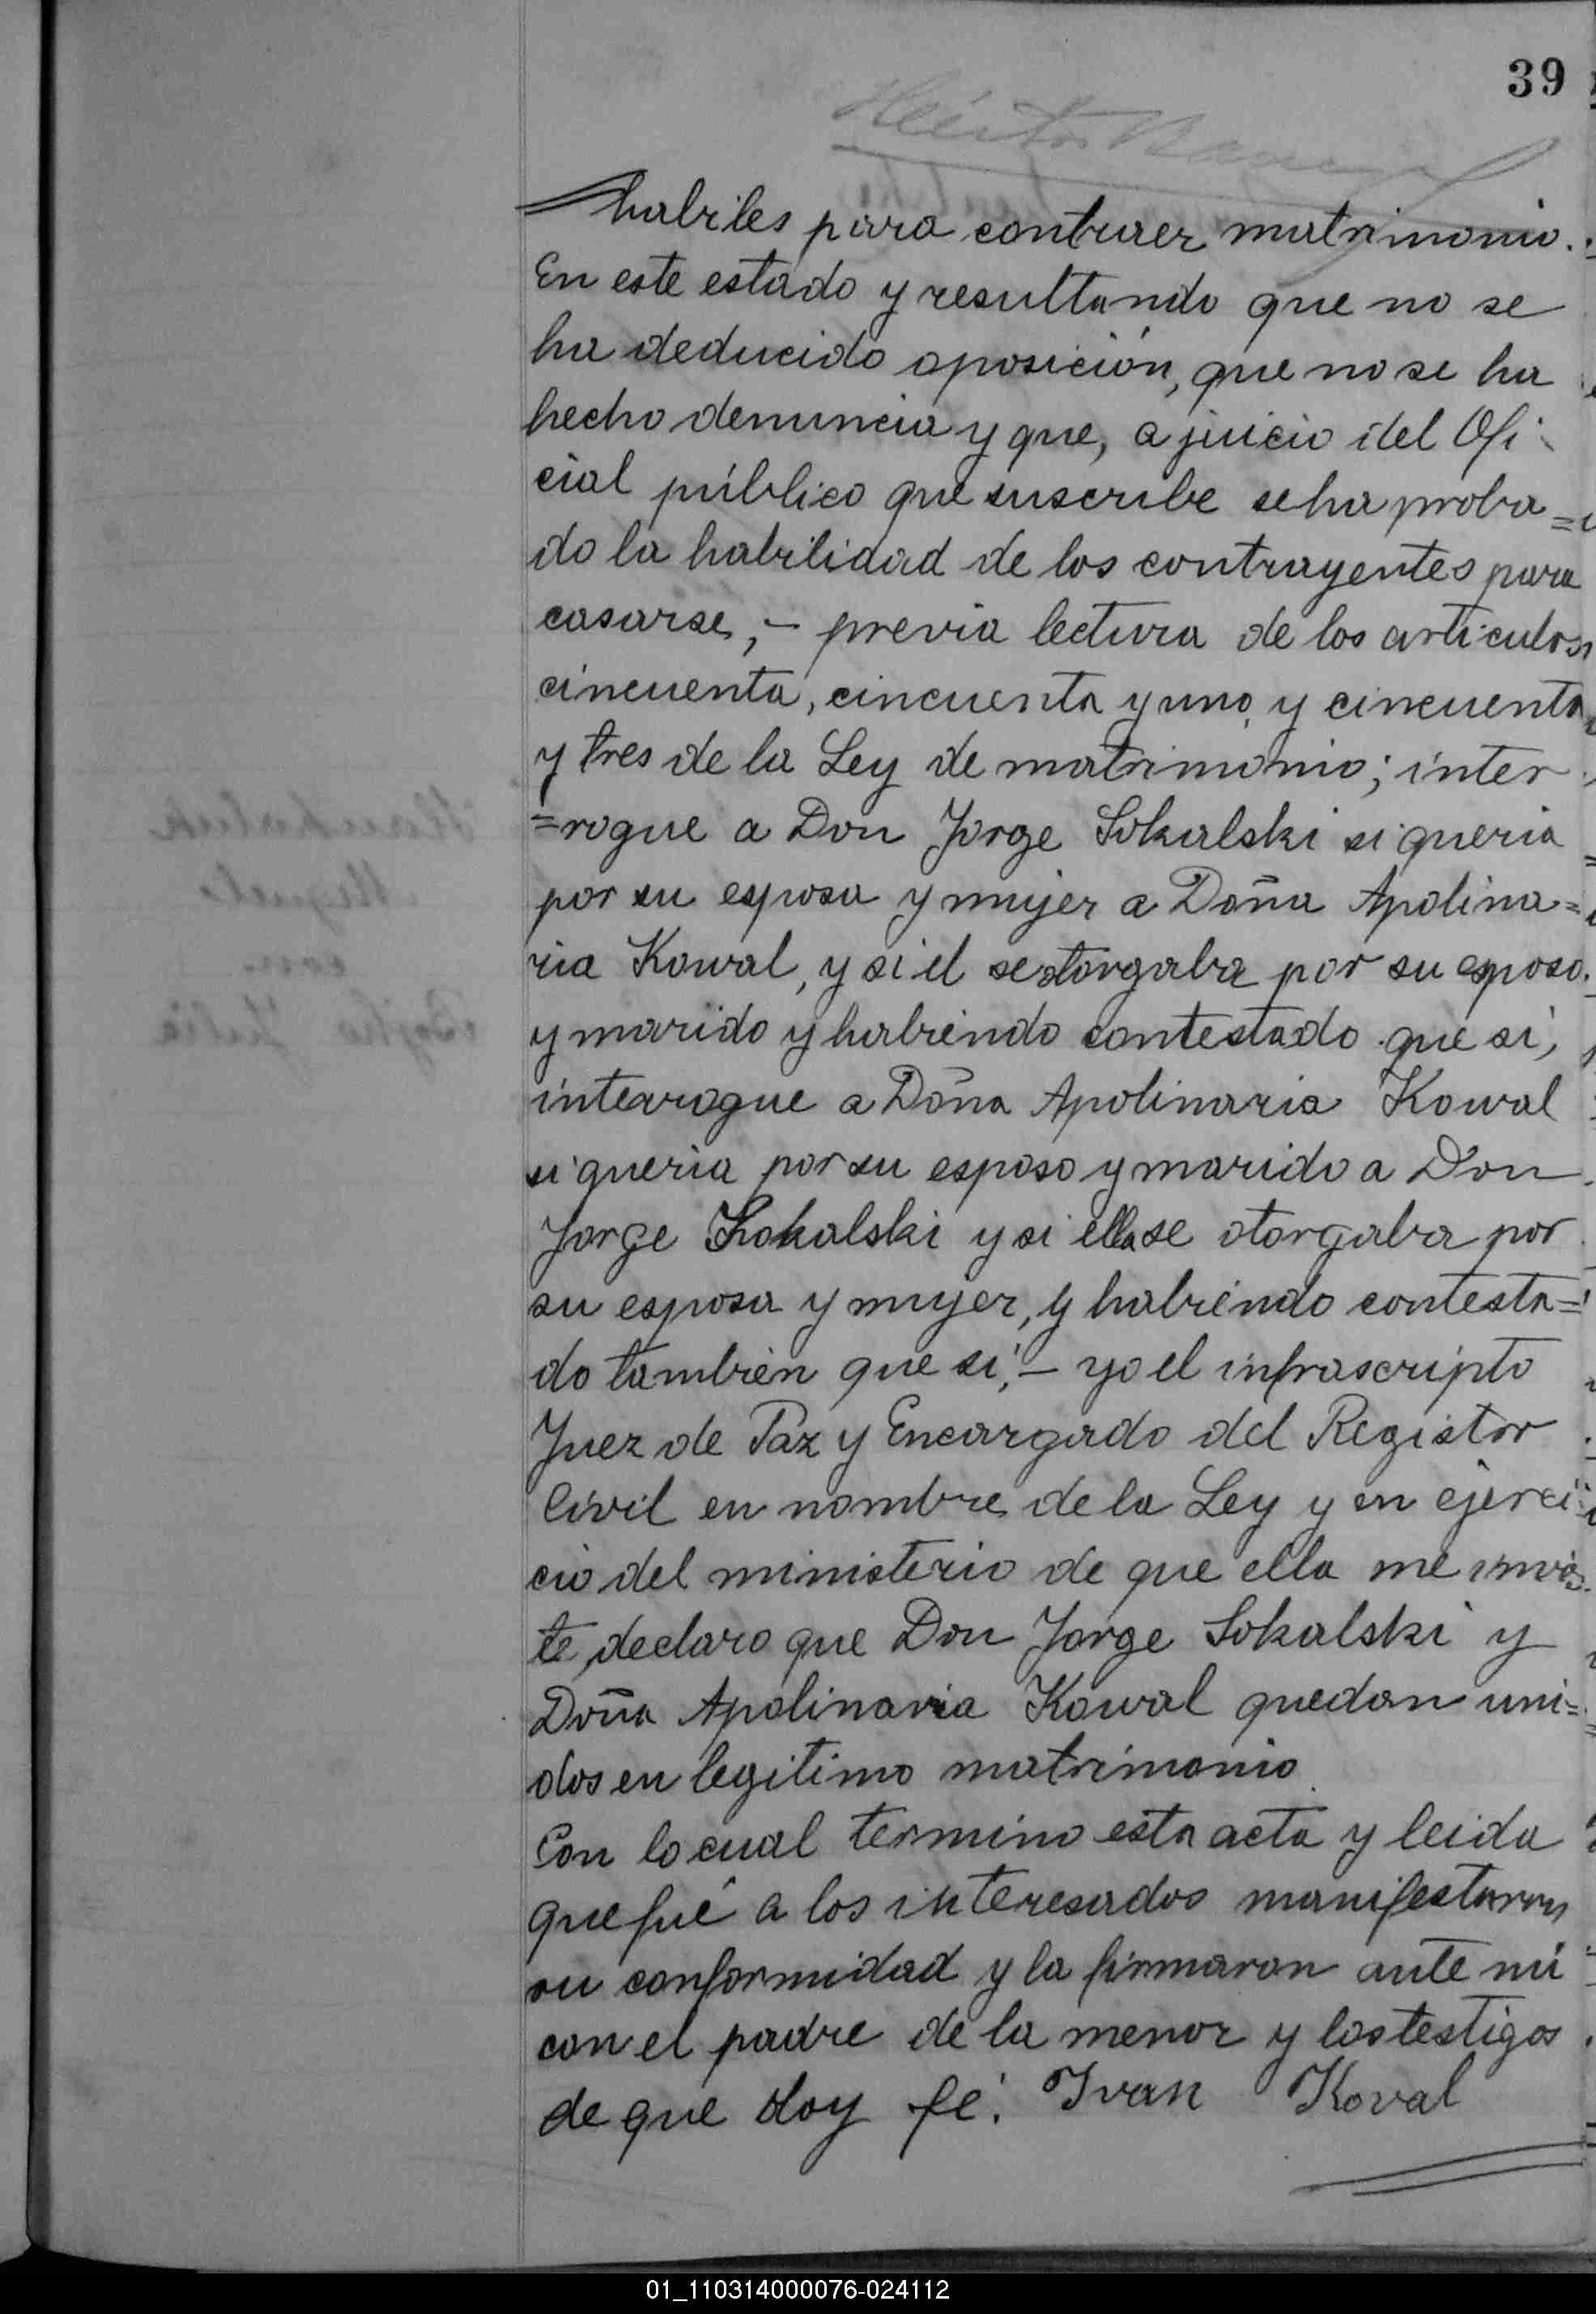 39
habiles para contraer matrimonio.
En este estado y resultando que no se
ha deducido oposición, que no se ha
hecho denuncia y que, a juicio del Ofi
cial público que suscribe se ha proba=
do la habilidad de los contrayentes para
casarse,- previa lectura de los articulos
cincuenta, cincuenta y uno, y cincuenta
y tres de la Ley de matrimonio; inter
=rogue a Don Jorge Sokalski si queria
por su esposa y mujer a Doña Apolina=
ria Kowal, y si el se otorgaba por su esposo
y marido y habiendo contestado que si,
interrogue a Doña Apolinaria Kowal
si queria por su esposo y marido a Don
Jorge Sokalski y si ella se otorgaba por
su esposa y mujer, y habiendo contesta=
do también que si,- yo el infrascripto
Juez de Paz y Encargado del Registor
Civil en nombre de la Ley y en ejerci
cio del ministerio de que ella me invis
te, declaro que Don Jorge Sokalski y
Doña Apolinaria Kowal quedan uni=
dos en legitimo matrimonio
Con lo cual termino esta acta y leida
que fué a los interesados manifestaron
su conformidad y la firmaron ante mi
con el padre de la menor y los testigos
de que doy fé. Ivan Koval
01_110314000076-024112